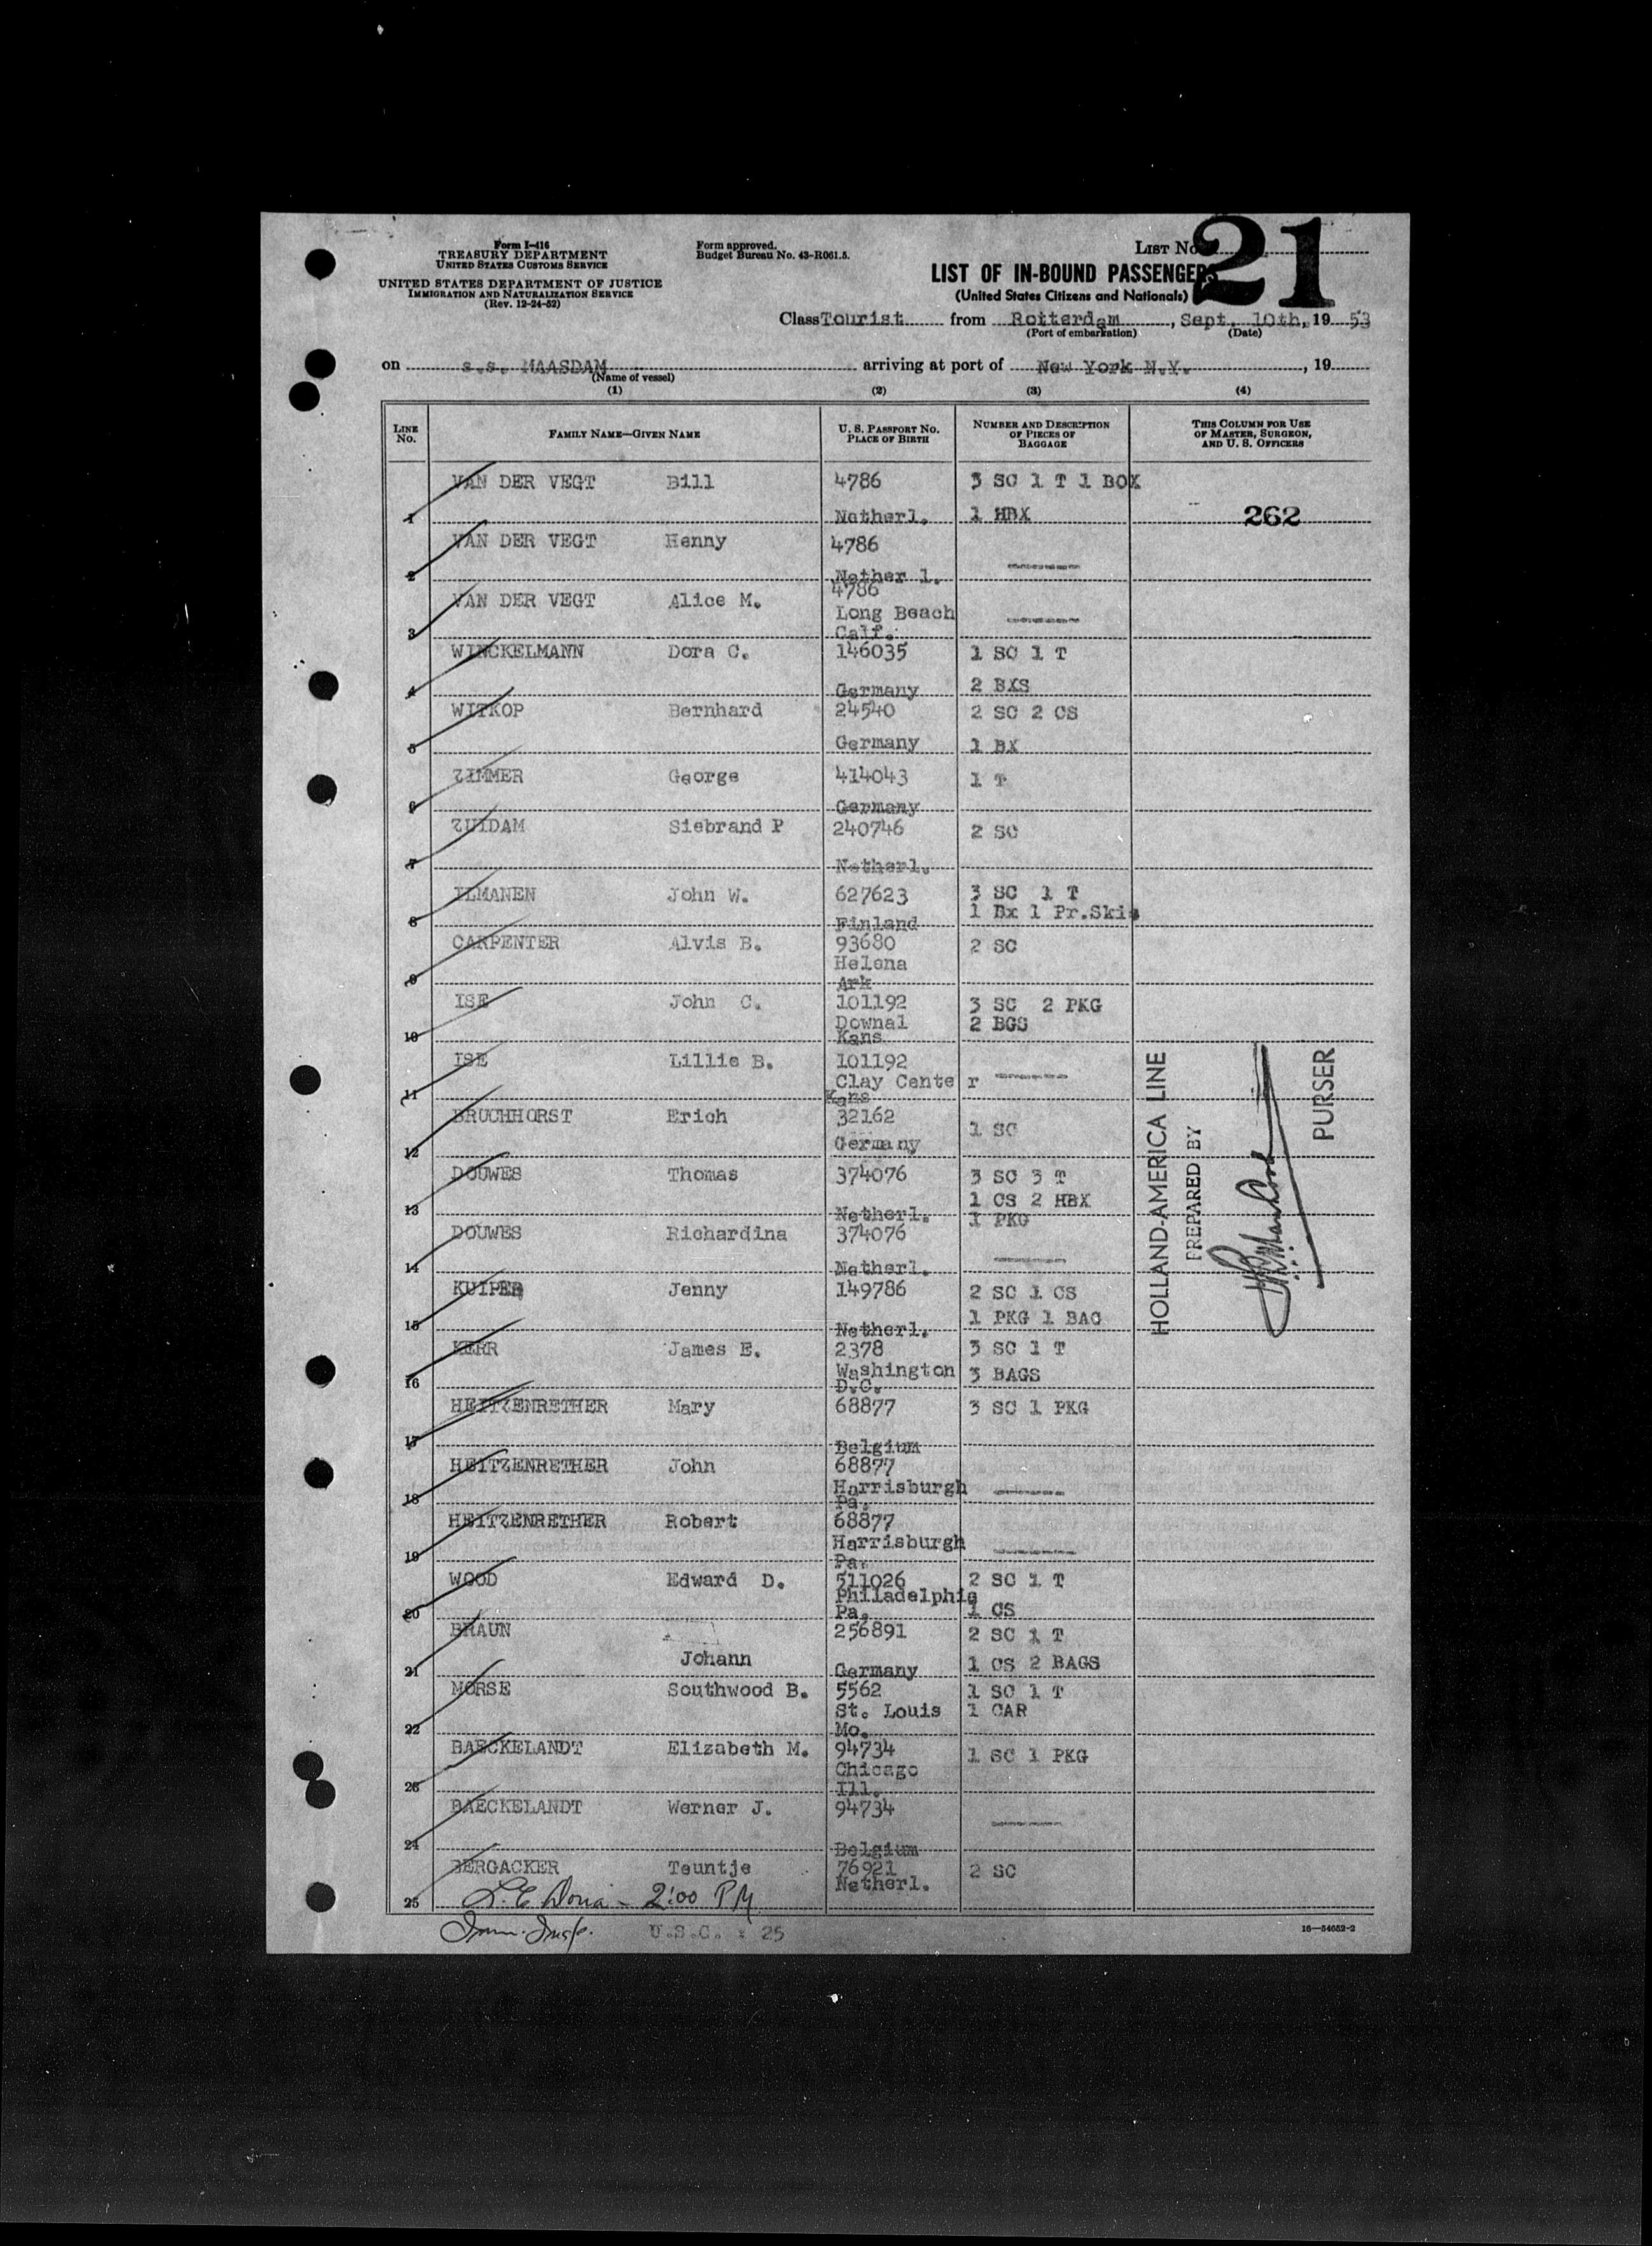 Form I-416
TREASURY DEPARTMENT
UNITED STATES CUSTOMS SERVICE
UNITED STATES DEPARTMENT OF JUSTICE
IMMIGRATION AND NATURALIZATION SERVICE
(Rev. 12-24-52)
Form approved.
Budget Bureau No. 43-R061.5.
LIST No. 21
LIST OF IN-BOUND PASSENGERS
(United States Citizens and Nationals)
Class Tourist from Rotterdam, Sept. 10th, 19 53
(Port of embarkation) (Date)
on s.s. MAASDAM arriving at port of New York N.Y., 19
(Name of vessel)
(1) (2) (3) (4)
LINE No. FAMILY NAME—GIVEN NAME U. S. PASSPORT No. PLACE OF BIRTH NUMBER AND DESCRIPTION OF PIECES OF BAGGAGE THIS COLUMN FOR USE OF MASTER, SURGEON, AND U. S. OFFICERS
VAN DER VEGT Bill 4786 3 SC 1 T 1 BOX
1 Netherl. 1 HBX 262
VAN DER VEGT Henny 4786
2 Nether l.
VAN DER VEGT Alice M. 4786
Long Beach
3 Calf.
WINCKELMANN Dora C. 146035 1 SC 1 T
4 Germany 2 BXS
WITKOP Bernhard 24540 2 SC 2 CS
5 Germany 1 BX
ZIMMER George 414043 1 T
6 Germany
ZUIDAM Siebrand P 240746 2 SC
7 Netherl.
ILMANEN John W. 627623 3 SC 1 T
8 Finland 1 Bx 1 Pr.Skis
CARPENTER Alvis B. 93680 2 SC
Helena
9 Ark
ISE John C. 101192 3 SC 2 PKG
Downal 2 BGS
10 Kans
ISE Lillie B. 101192
Clay Cente r
11 Kans
BRUCHHORST Erich 32162 1 SC
12 Germa ny
DOUWES Thomas 374076 3 SC 3 T
1 CS 2 HBX
13 Netherl. 1 PKG
DOUWES Richardina 374076
14 Netherl.
KUIPER Jenny 149786 2 SC 1 CS
15 Netherl. 1 PKG 1 BAG
KERR James E. 2378 3 SC 1 T
Washington 3 BAGS
16 D.C.
HEITZENRETHER Mary 68877 3 SC 1 PKG
17 Belgium
HEITZENRETHER John 68877
Harrisburgh
18 Pa.
HEITZENRETHER Robert 68877
Harrisburgh
19 Pa.
WOOD Edward D. 511026 2 SC 1 T
Philadelphia
20 Pa. 1 CS
BRAUN 256891 2 SC 1 T
Johann 1 CS 2 BAGS
21 Germany
MORSE Southwood B. 5562 1 SC 1 T
St. Louis 1 CAR
22 Mo.
BAECKELANDT Elizabeth M. 94734 1 SC 1 PKG
Chicago
23 Ill.
BAECKELANDT Werner J. 94734
24 Belgium
BERGACKER Teuntje 76921 2 SC
Netherl.
25 2:00 PM
Imm. Insp. U.S.C. : 25
16—54652-2
HOLLAND-AMERICA LINE
PREPARED BY
PURSER